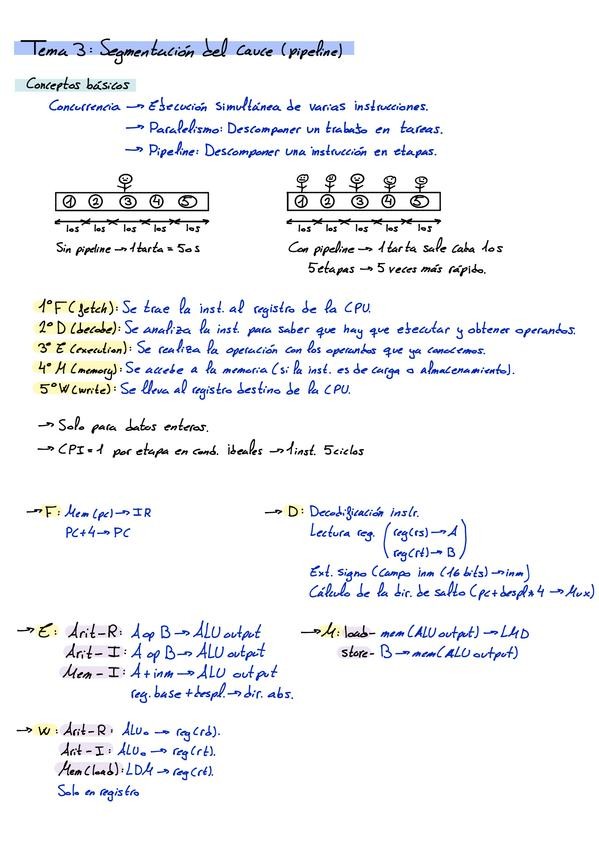 Tema 3: Segmentación del cauce (pipeline)
Conceptos básicos
Concurrencia → Ejecución simultánea de varias instrucciones.
→ Paralelismo: Descomponer un trabajo en tareas.
→ Pipeline: Descomponer una instrucción en etapas.
1 2 3 4 5
10s 10s 10s 10s 10s
Sin pipeline → 1 tarta = 50s
1 2 3 4 5
10s 10s 10s 10s 10s
Con pipeline → 1 tarta sale cada 10s
5 etapas → 5 veces más rápido.
1º F (fetch): Se trae la inst. al registro de la CPU.
2º D (decode): Se analiza la inst. para saber que hay que ejecutar y obtener operandos.
3º E (execution): Se realiza la operación con los operandos que ya conocemos.
4º M (memory): Se accede a la memoria (si la inst. es de carga o almacenamiento).
5º W (write): Se lleva al registro destino de la CPU.
→ Solo para datos enteros.
→ CPI = 1 por etapa en cond. ideales → 1 inst. 5 ciclos
→ F: Mem (pc) → IR
PC+4 → PC
→ D: Decodificación instr.
Lectura reg. (reg(rs) → A
reg(rt) → B)
Ext. signo (Campo inm (16 bits) → inm)
Cálculo de la dir. de salto (pc+despl*4 → Mux)
→ E: Arit-R: A op B → ALU output
Arit-I: A op B → ALU output
Mem-I: A + inm → ALU output
reg. base + despl. → dir. abs.
→ M: load- mem (ALU output) → LMD
store- B → mem (ALU output)
→ W: Arit-R: ALUo → reg(rd).
Arit-I: ALUo → reg(rt).
Mem (load): LDM → reg(rt).
Solo en registro